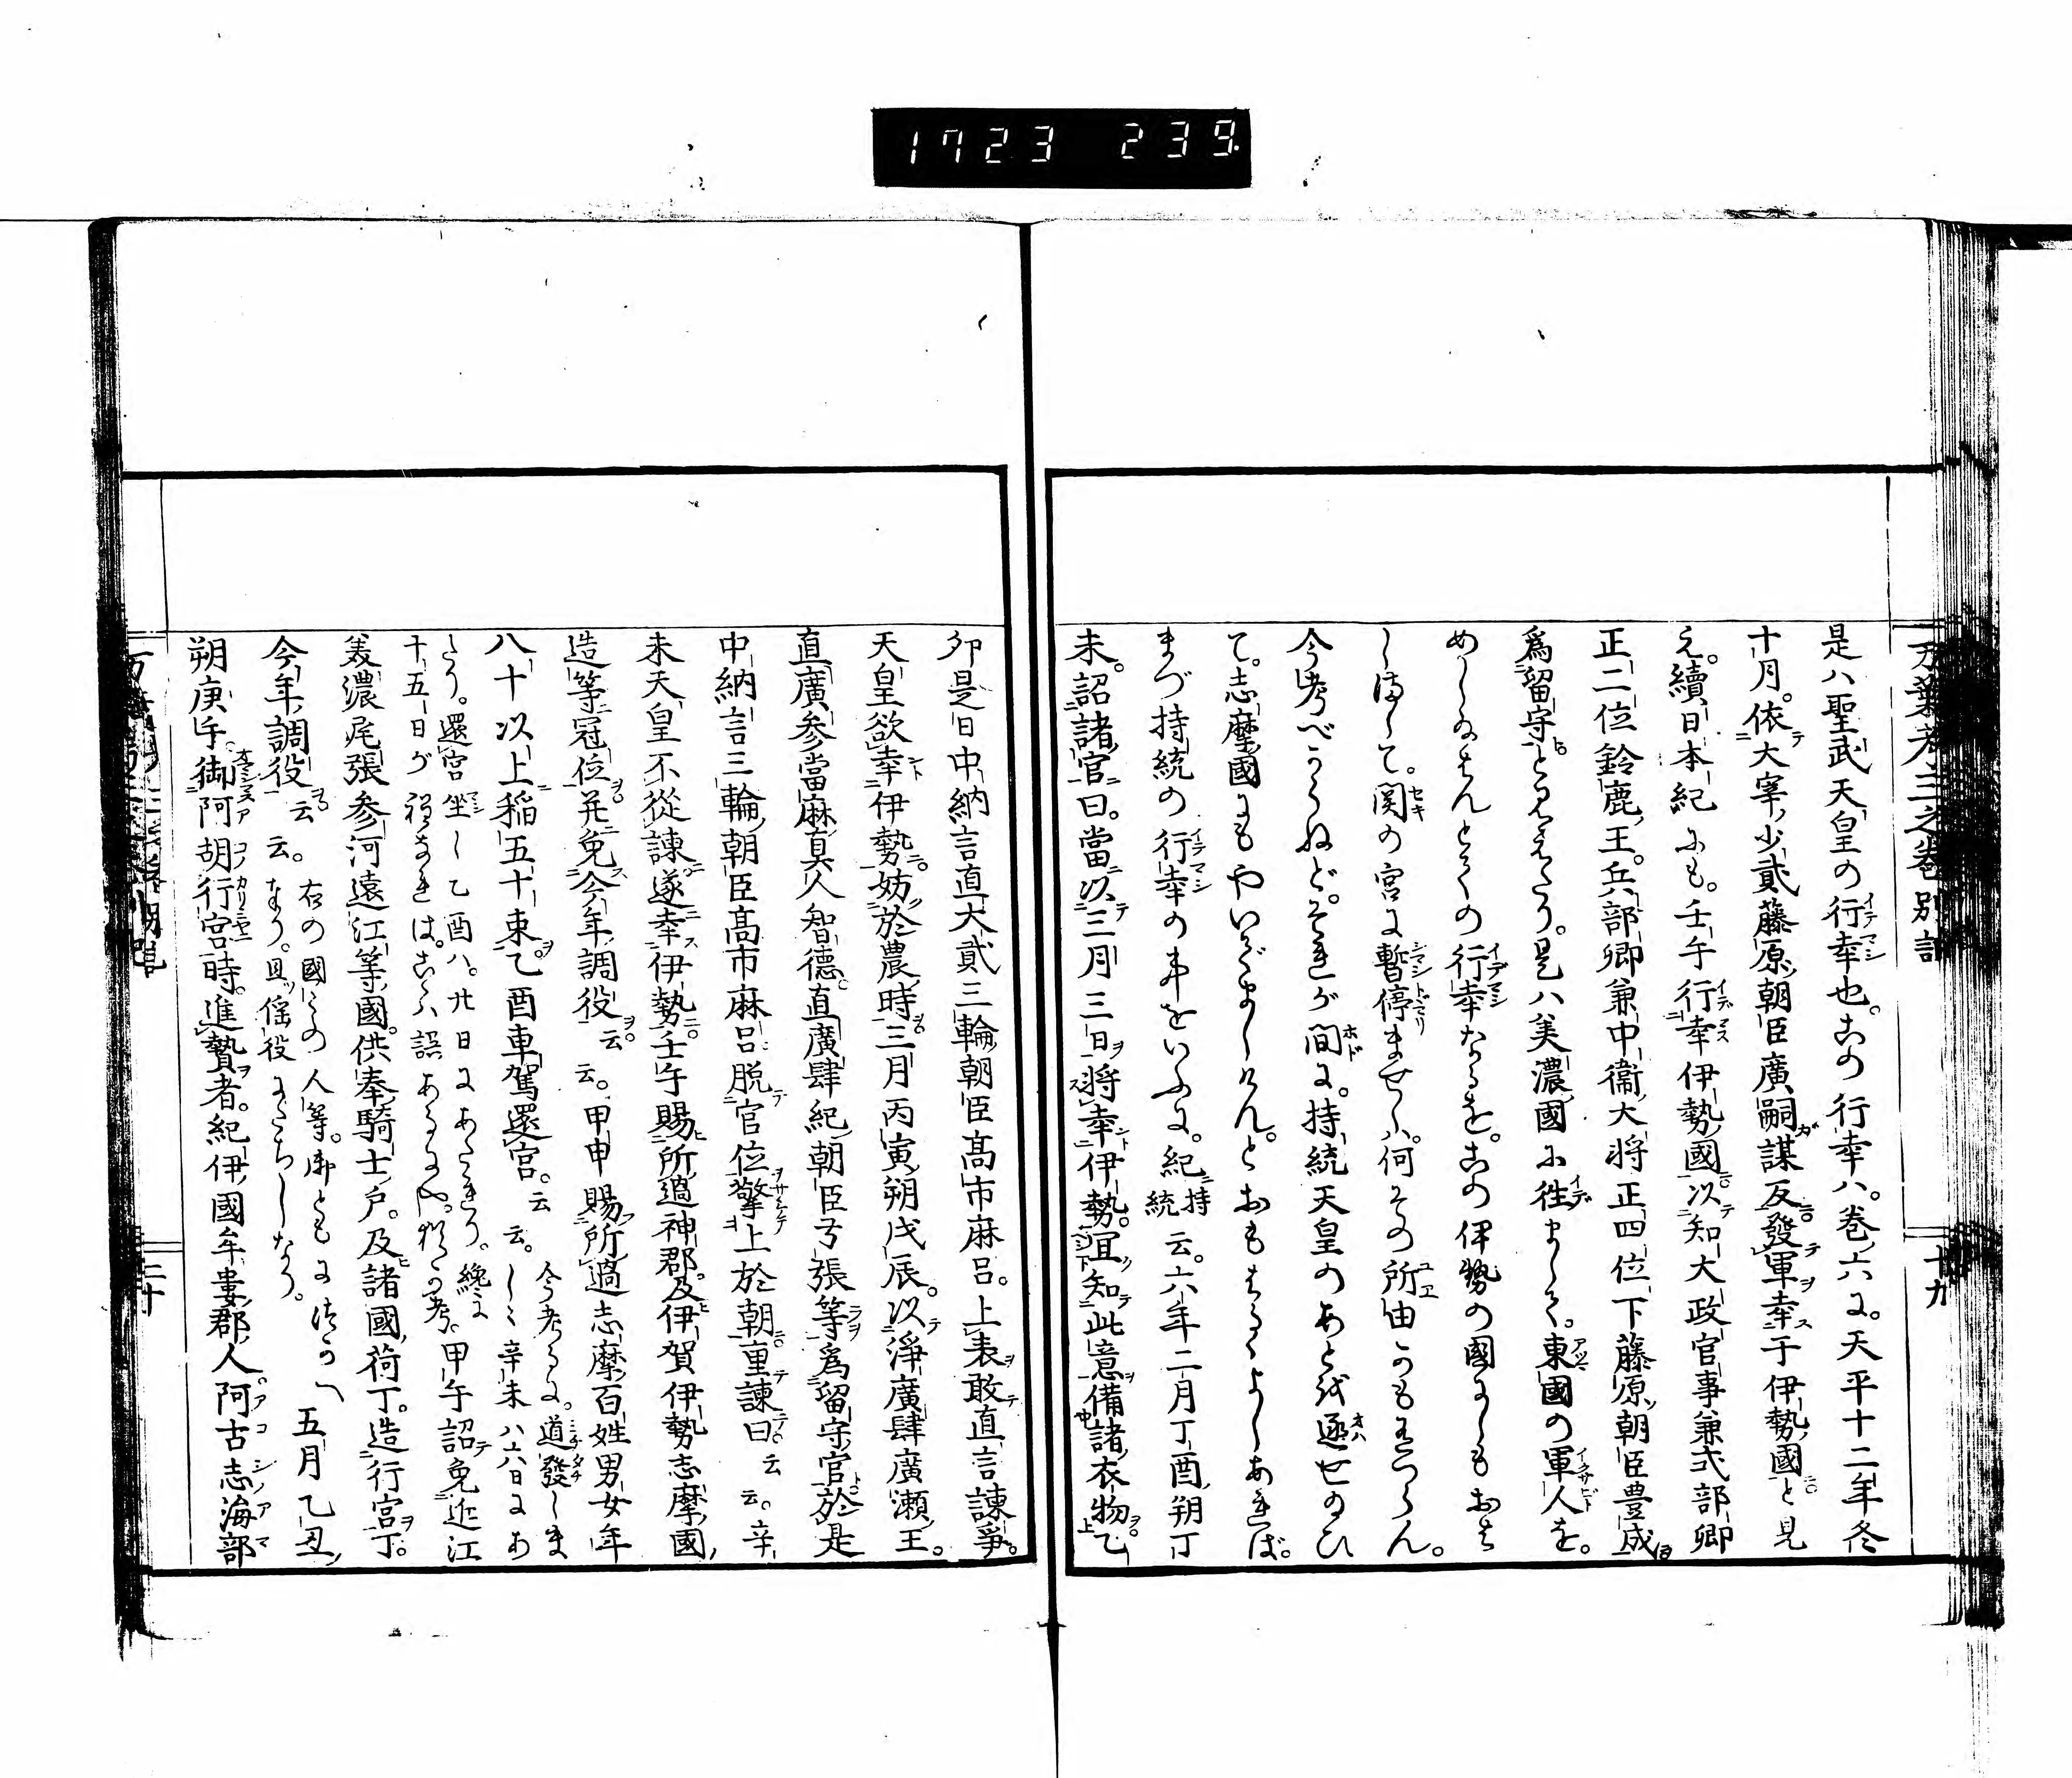 1723 239
万葉考三之巻別記 十九
是ハ聖武天皇の行幸也。この行幸ハ。巻六に。天平十二年冬
十月。依大宰少貳藤原朝臣廣嗣謀反發軍幸于伊勢國と見
え。續日本紀にも。壬午行幸伊勢國。以知大政官事兼式部卿
正二位鈴鹿王。兵部卿兼中衞大将正四位下藤原朝臣豊成
爲留守と見えたり。是ハ美濃國に往まして。東國の軍人を。
めし給はんとての行幸なるを。この伊勢の國にしもおは
しまして。関の宮に暫停ませしハ。何その所由かも有つらん。
今考べからねど。それが間に。持統天皇のあとを遞せ給ひ
て。志摩國にもやいでましけん。とおもはるゝよしあれば。
まづ持統の行幸の事をいふに。紀持統云。六年二月丁酉朔丁
未。詔諸官曰。當以三月三日将幸伊勢。宜知此意備諸衣物乙
卯是日中納言直大貳三輪朝臣髙市麻呂。上表敢直言諫爭。
天皇欲幸伊勢。妨於農時三月丙寅朔戊辰。以淨廣肆廣瀬王。
直廣参當麻真人智德。直廣肆紀朝臣弓張等爲留守官於是
中納言三輪朝臣髙市麻呂脱官位擎上於朝重諫曰。云云。辛
未天皇不從諫遂幸伊勢。壬午賜所過神郡及伊賀伊勢志摩國
造等冠位并免今年調役。云云。甲申賜所過志摩百姓男女年
八十以上稲五十束。乙酉車駕還宮。云云。今考るに。道發しま
しゝ辛未ハ六日にあ
たり。還宮坐し乙酉ハ。廿日にあたれり。纔に
十五日が程なれは。こゝハ誤あるか。猶可考。甲午詔免近江
美濃尾張参河遠江等國。供奉騎士戸。及諸國荷丁。造行宮丁。
今年調役。云云。右の國々の人等。御ともにつかへ
まつり。且傜役にたちしなり。五月乙丑
朔庚午。御阿胡行宮時。進贄者。紀伊國牟婁郡人。阿古志海部
二十